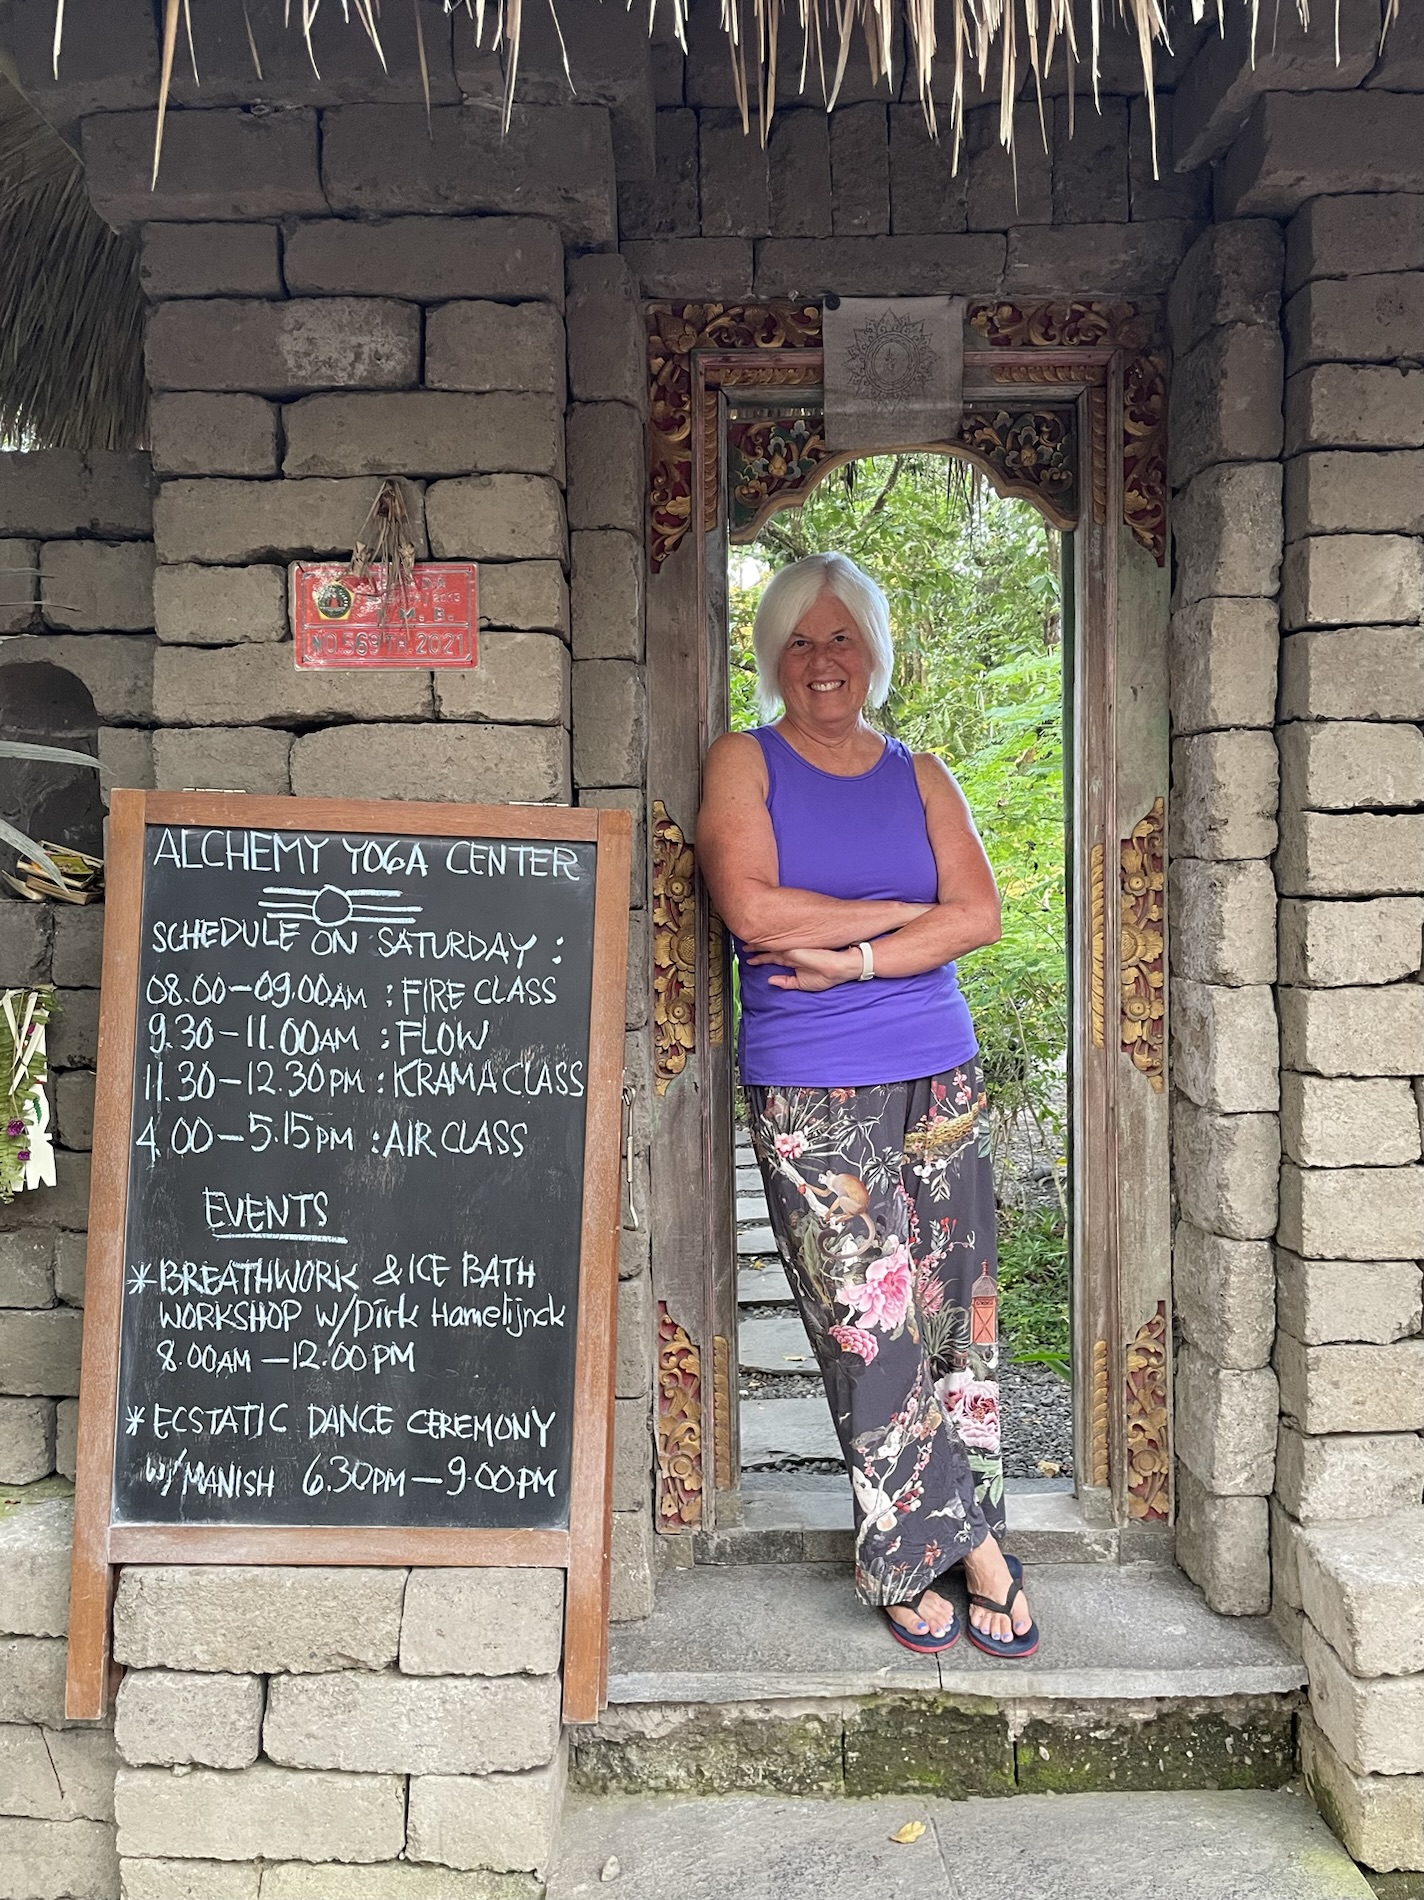 ALCHEMY YOGA CENTER
SCHEDULE ON SATURDAY :
08.00-09.00AM : FIRE CLASS
9.30-11.00AM : FLOW
11.30-12.30PM : KRAMA CLASS
4.00-5.15PM : AIR CLASS
EVENTS
* BREATHWORK & ICE BATH
WORKSHOP W/Dirk Hamelijnck
8.00AM -12.00PM
* ECSTATIC DANCE CEREMONY
W/MANISH 6.30PM-9.00PM
M.B.
NO.569TH.2021